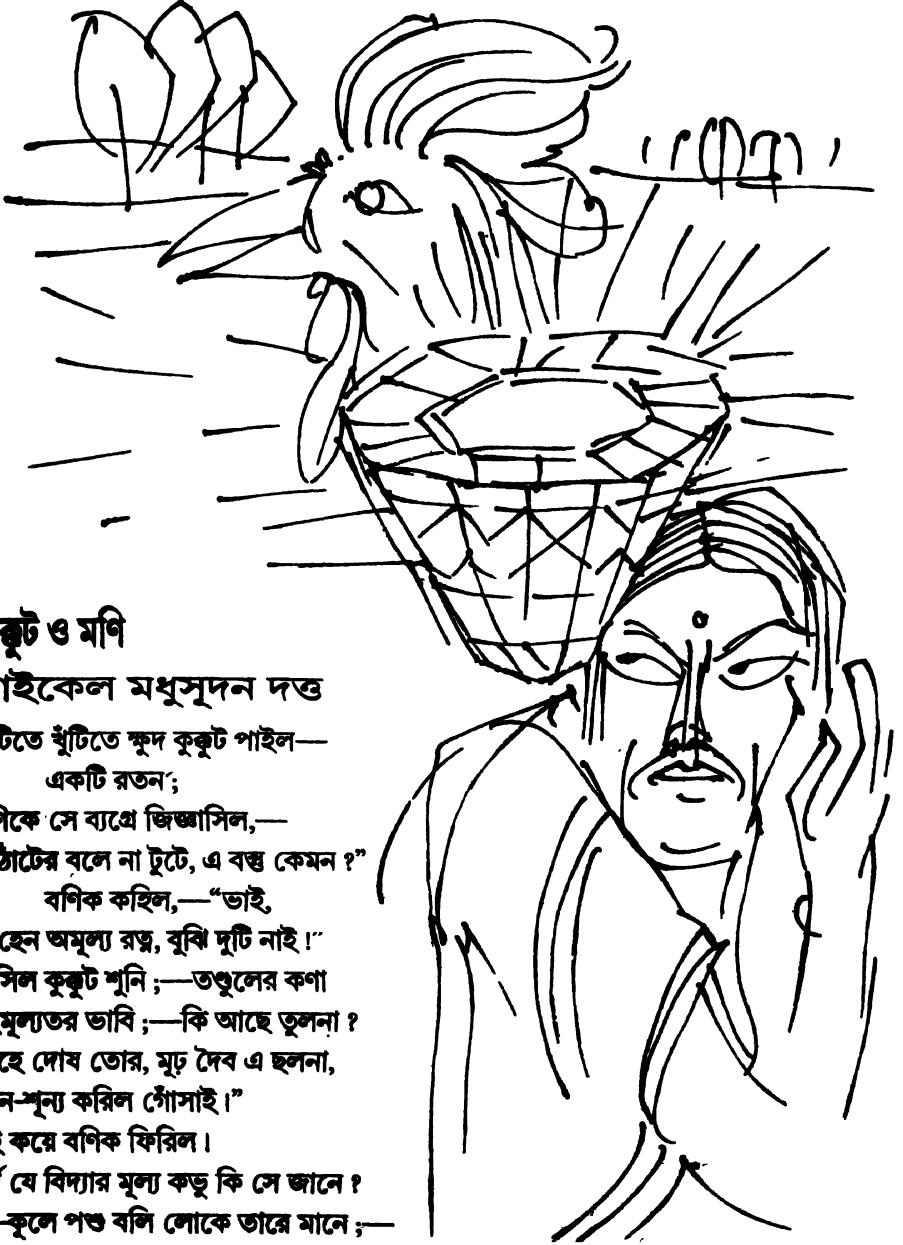 ক্কুট ও মণি
াইকেল মধুসূদন দত্ত
টিতে খুঁটিতে ক্ষুদ কুক্কুট পাইল—
একটি রতন;
িকে সে ব্যগ্রে জিজ্ঞাসিল,—
ঠোঁটের বলে না টুটে, এ বস্তু কেমন ?”
বণিক কহিল,—“ভাই,
হেন অমূল্য রত্ন, বুঝি দুটি নাই !”
সিল কুক্কুট শুনি ;—তণ্ডুলের কণা
মূল্যতর ভাবি ;—কি আছে তুলনা ?
হে দোষ তোর, মূঢ় দৈব এ ছলনা,
ন-শূন্য করিল গোঁসাই।”
ই কয়ে বণিক ফিরিল।
যে বিদ্যার মূল্য কভু কি সে জানে ?
-কুলে পশু বলি লোকে তারে মানে ;—